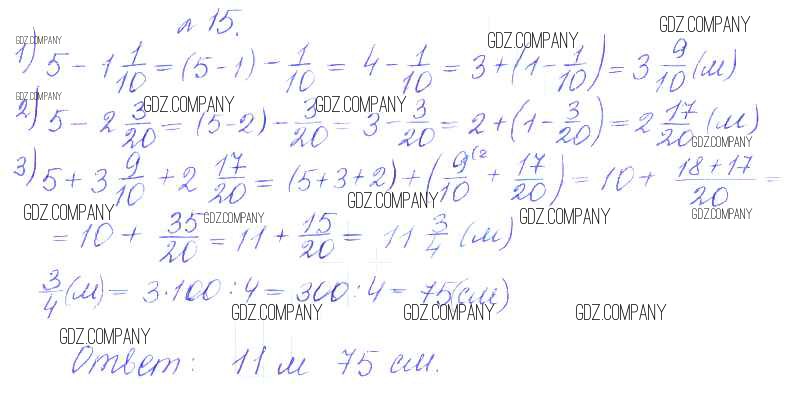 № 15.
GDZ.COMPANY
GDZ.COMPANY GDZ.COMPANY
1) 5 - 1 1/10 = (5-1) - 1/10 = 4 - 1/10 = 3 + (1 - 1/10) = 3 9/10 (м)
GDZ.COMPANY GDZ.COMPANY GDZ.COMPANY
2) 5 - 2 3/20 = (5-2) - 3/20 = 3 - 3/20 = 2 + (1 - 3/20) = 2 17/20 (м)
GDZ.COMPANY
3) 5 + 3 9/10 + 2 17/20 = (5+3+2) + (9/10 (2 + 17/20) = 10 + 18+17/20 =
GDZ.COMPANY GDZ.COMPANY GDZ.COMPANY GDZ.COMPANY GDZ.COMPANY
= 10 + 35/20 = 11 + 15/20 = 11 3/4 (м)
3/4 (м) = 3·100 : 4 = 300 : 4 = 75 (см)
GDZ.COMPANY GDZ.COMPANY GDZ.COMPANY
GDZ.COMPANY
Ответ: 11 м 75 см.